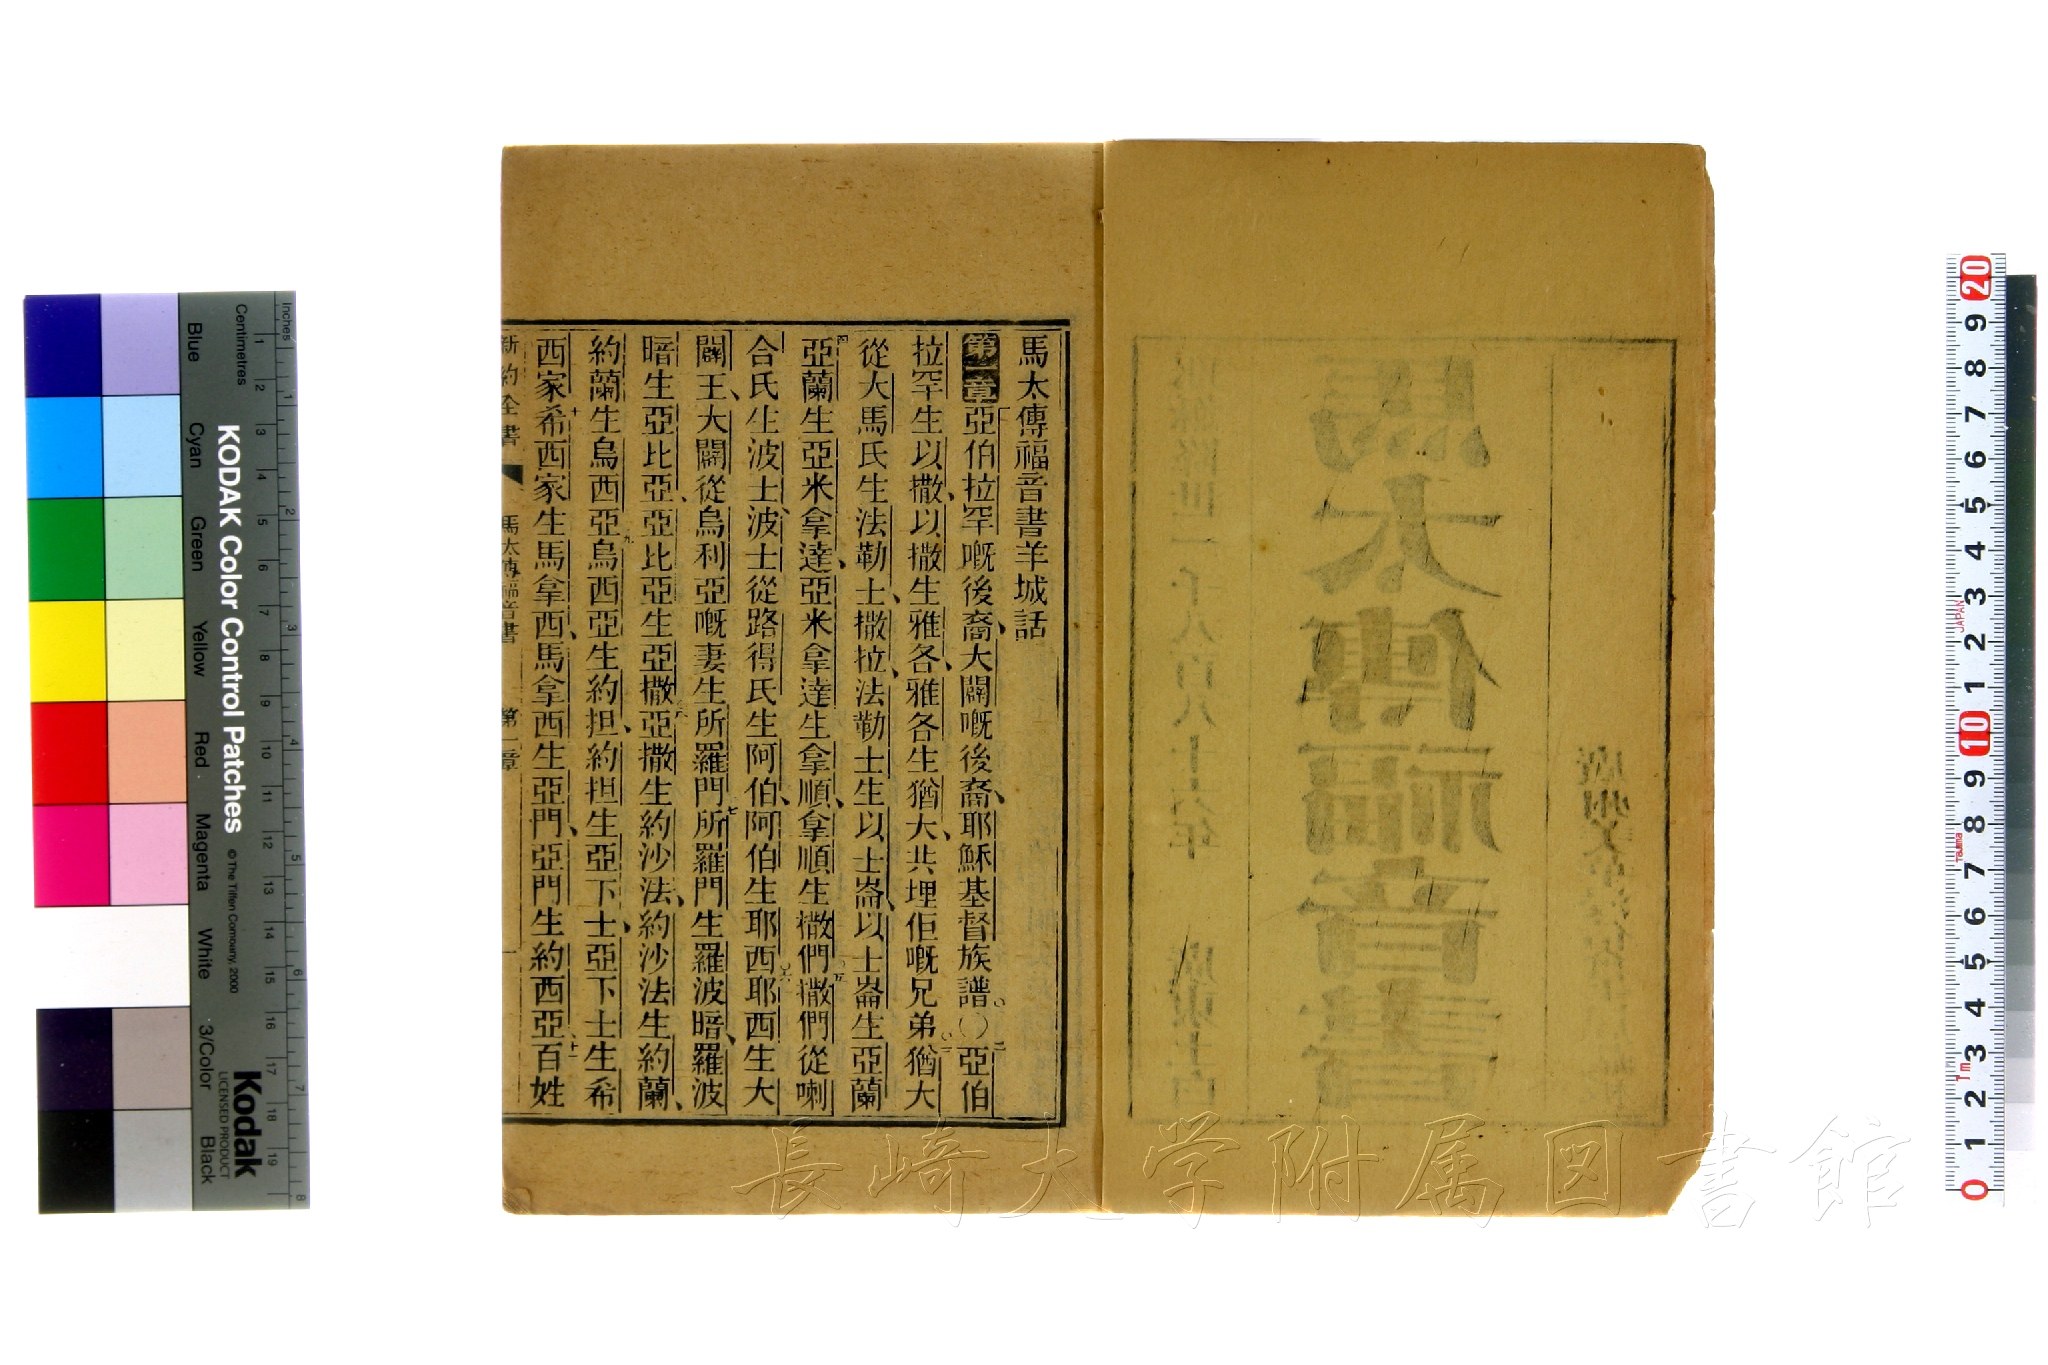 馬太傳福音書羊城話
第一章亞伯拉罕嘅後裔、大闢嘅後裔、耶穌基督族譜。〇二亞伯
拉罕生以撒、以撒生雅各、雅各生猶大、共埋佢嘅兄弟。三猶大
從大馬氏生法勒士、撒拉、法勒士生以士崙、以士崙生亞蘭、
四亞蘭生亞米拿達、亞米拿達生拿順、拿順生撒們、五撒們從喇
合氏生波士、波士從路得氏生阿伯、阿伯生耶西、六耶西生大
闢王、大闢從烏利亞嘅妻生所羅門、七所羅門生羅波暗、羅波
暗生亞比亞、亞比亞生亞撒、八亞撒生約沙法、約沙法生約蘭、
約蘭生烏西亞、九烏西亞生約担、約担生亞下士、亞下士生希
西家、十希西家生馬拿西、馬拿西生亞門、亞門生約西亞、十一百姓
新約全書 馬太傳福音書 第一章 一
馬太傳福音書
耶穌降世一千八百八十二年
長崎大学附属図書館
KODAK Color Control Patches
© The Tiffen Company, 2000
Kodak
LICENSED PRODUCT
Inches
Centimetres
Blue
Cyan
Green
Yellow
Red
Magenta
White
3/Color
Black
1 2 3 4 5 6 7 8 9 10 11 12 13 14 15 16 17 18 19
1 2 3 4 5 6 7 8
20
9
8
7
6
5
4
3
JAPAN
2
1
10
9
8
Tajima
7
6
5
4
3
Tm
2
1
0